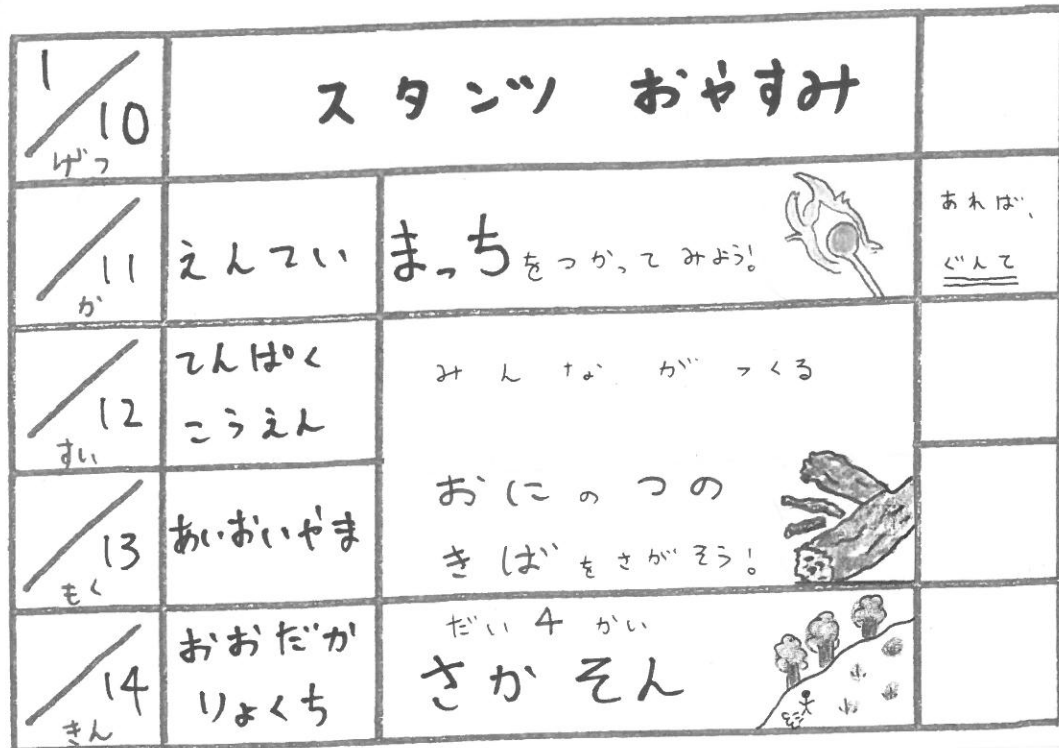 1/10
げつ
スタンツ おやすみ
11
か
えんてい
まっちをつかってみよう!
あれば、
ぐんて
12
すい
てんぱく
こうえん
みんながつくる
おにのつの
きばをさがそう!
13
もく
あいおいやま
14
きん
おおだか
りょくち
だい4かい
さかそん